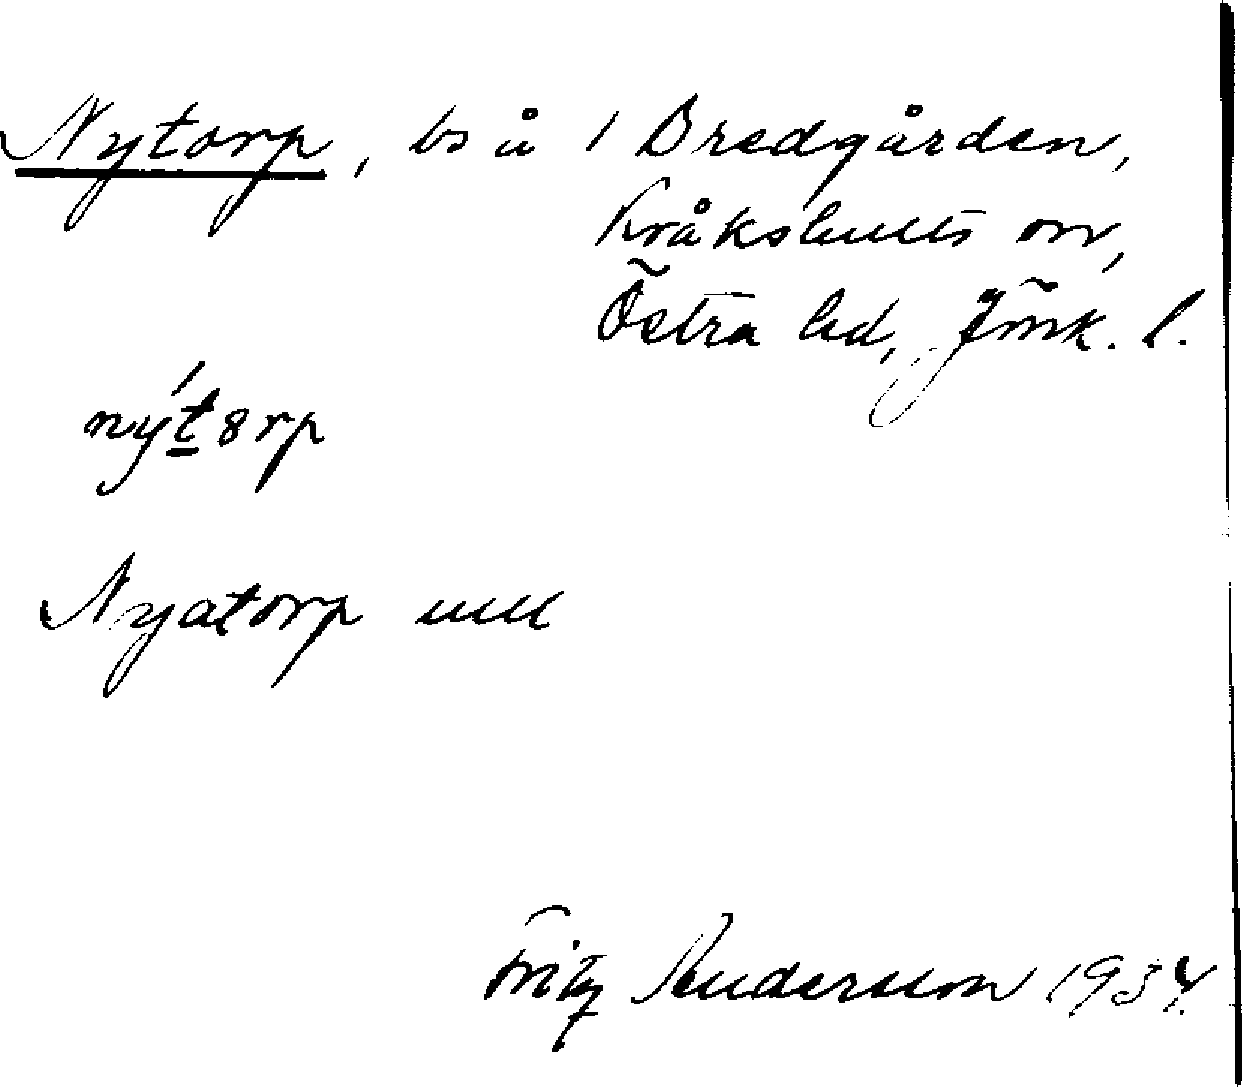 Nytorp, bs å 1 Bredgården,
Kråkshults sn,
Östra hd, Jönk. l.
nýt8rp
Nyatorp
Fritz Andersson 1934.